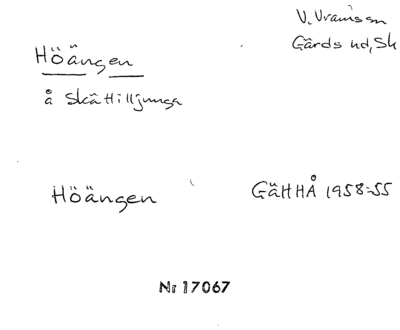 V. Vramsån
Gärds hd, Sk
Höängen
å Skättilljunga
Höängen
GäHHÅ 1958-55
Nr 17067